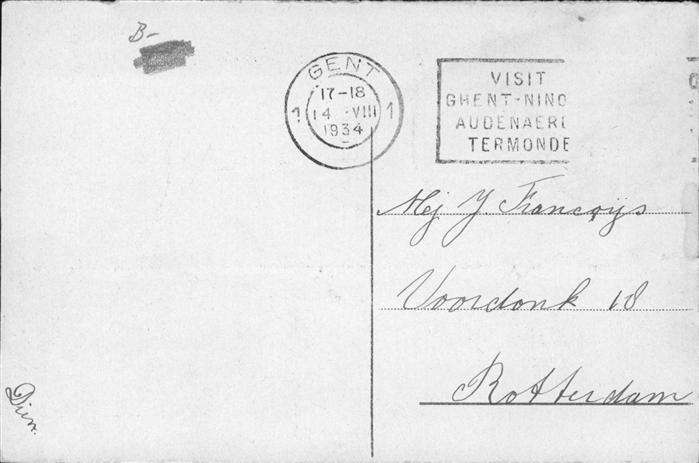 B-
GENT
17-18
1 14 VIII 1
1934
VISIT
GHENT-NINO
AUDENAERD
TERMONDE
G
Mej Y. Francoijs
Voordonk 18
Rotterdam
Dien.